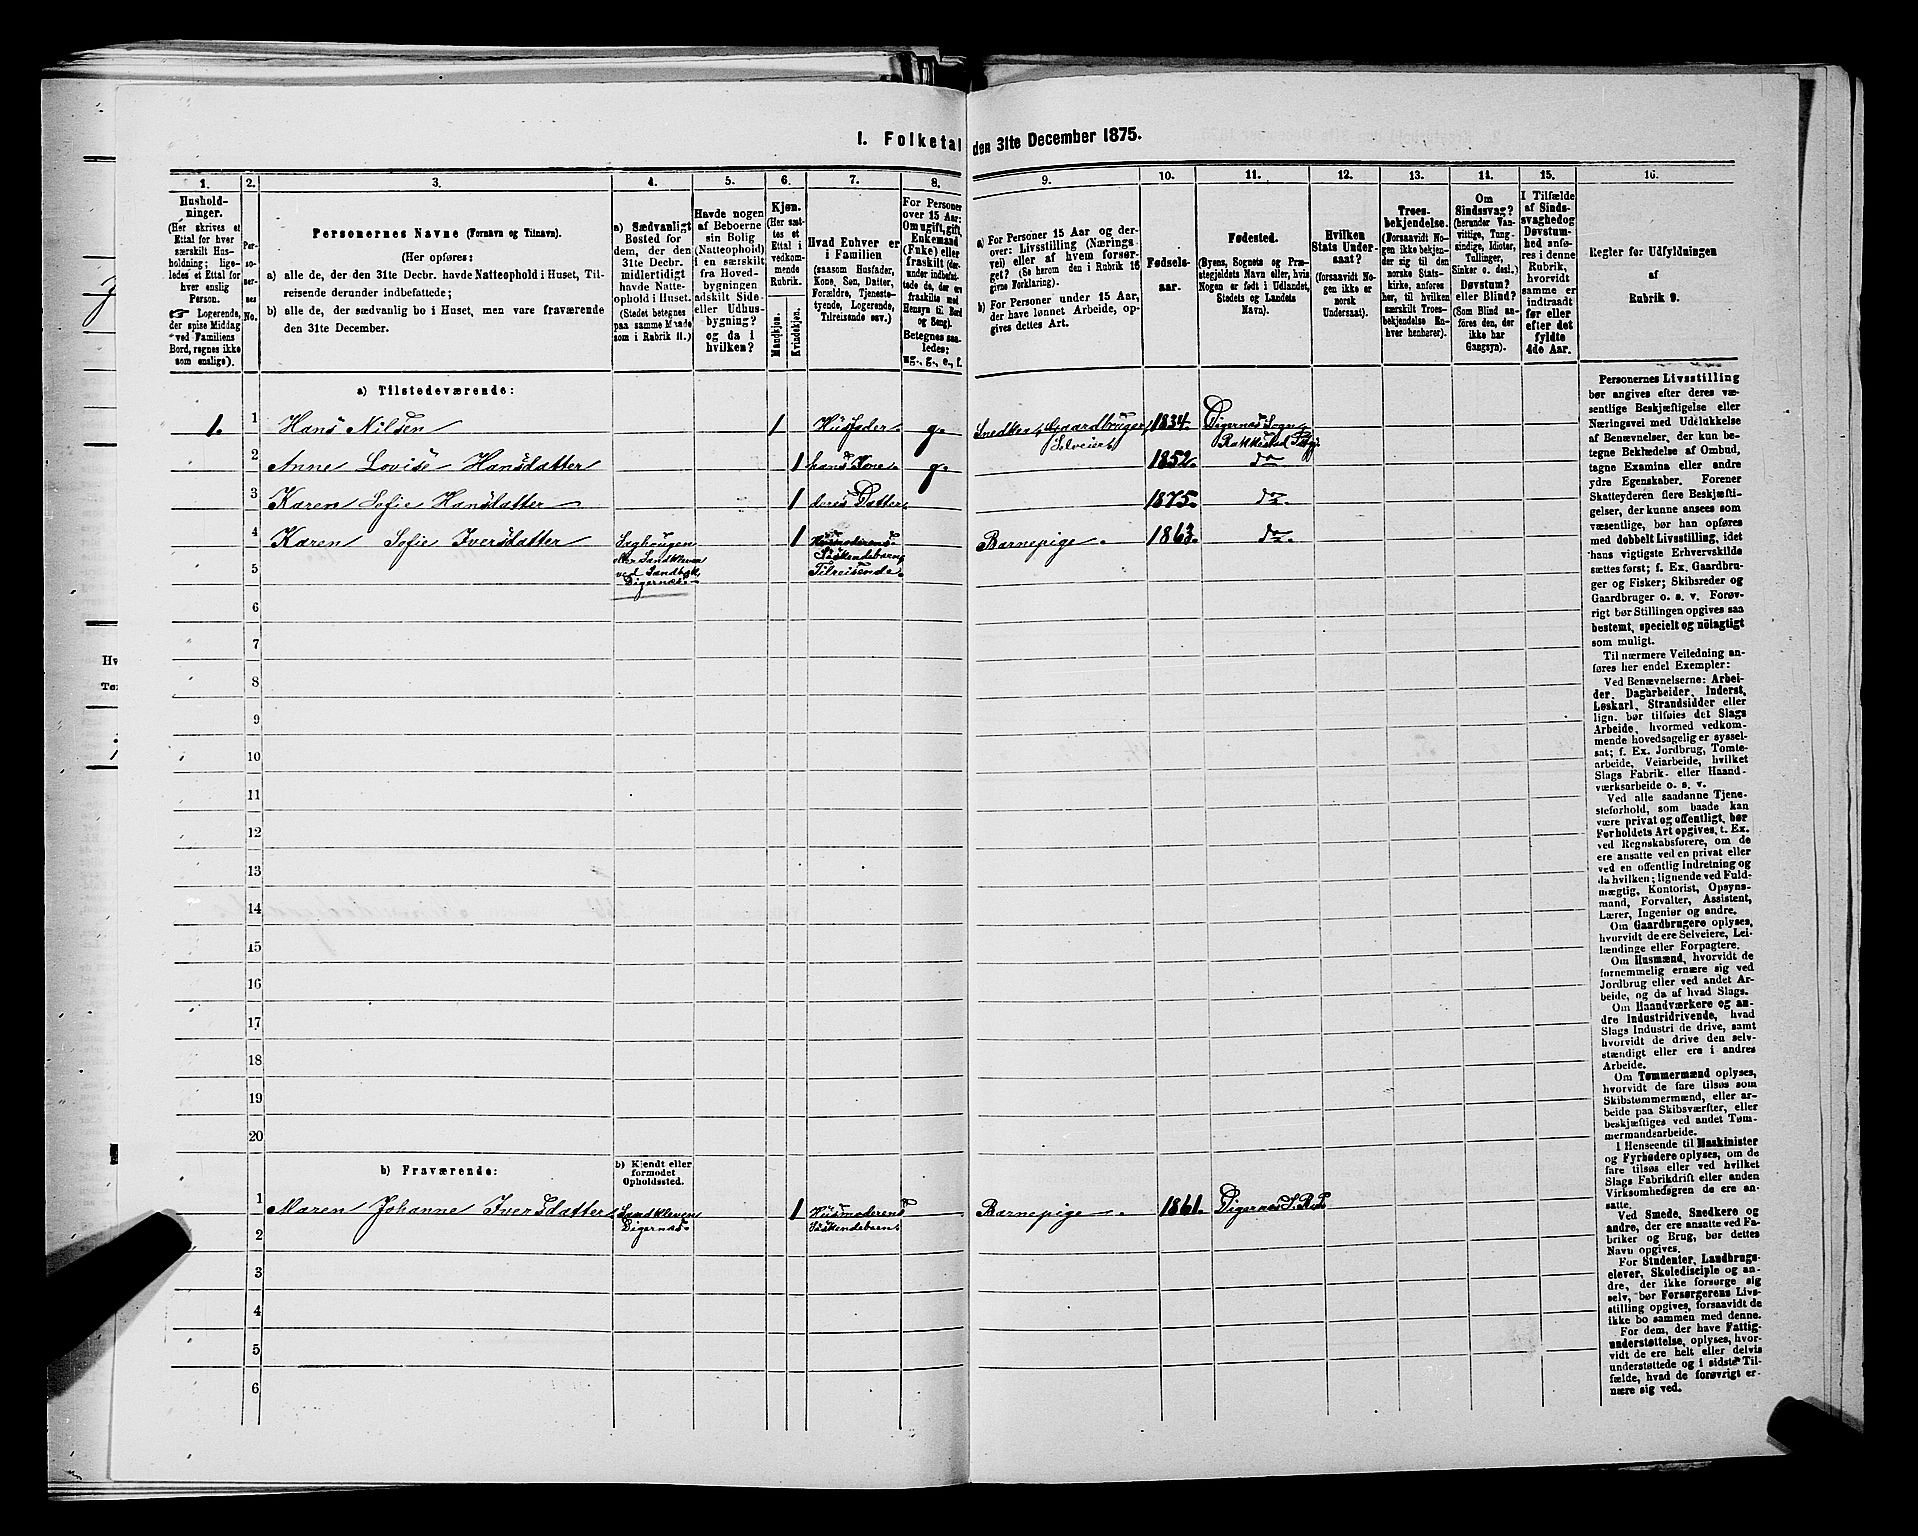 I. Folketal den 31te December 1875.
1. 2. 3. 4. 5. 6. 7. 8. 9. 10. 11. 12. 13. 14. 15. 16.
Hushold-
ninger.
(Her skrives et
Ettal for hver
særskilt Hus-
holdning; lige-
ledes et Ettal for
hver enslig
Person.
☞ Logerende,
der spise Middag
ved Familiens
Bord, regnes ikke
som enslige).
Per-
so-
ner-
nes
No.
Personernes Navne (Fornavn og Tilnavn).
(Her opføres:
a) alle de, der den 31te Decbr. havde Natteophold i Huset, Til-
reisende derunder indbefattede;
b) alle de, der sædvanlig bo i Huset, men vare fraværende
den 31te December.
a) Sædvanligt
Bosted for
dem, der den
31te Decbr.
midlertidigt
havde Natte-
ophold i Huset.
(Stedet betegnes
paa samme Maade
som i Rubrik 11.)
Havde nogen
af Beboerne
sin Bolig
(Natteophold)
i en særskilt
fra Hoved-
bygningen
adskilt Side-
eller Udhus-
bygning?
og da i
hvilken?
Kjøn.
(Her sæt-
tes et
Ettal i
vedkom-
mende
Rubrik.
Mandkjøn.
Kvindekjøn.
Hvad Enhver er
i Familien
(saasom Husfader,
Kone, Søn, Datter,
Forældre, Tjeneste-
tyende, Logerende,
Tilreisende osv.)
For Personer
over 15 Aar:
Om ugift, gift,
Enkemand
(Enke) eller
fraskilt (der-
under indbefat-
tede de, der ere
fraskilte med
Hensyn til Bord
og Seng).
Betegnes saa-
ledes:
ug., g., e., f.
a) For Personer 15 Aar og der-
over: Livsstilling (Nærings-
vei) eller af hvem forsør-
get? (Se herom den i Rubrik 16
givne Forklaring).
b) For Personer under 15 Aar,
der have lønnet Arbeide, op-
gives dettes Art.
Fødsels-
aar.
Fødested.
(Byens, Sognets og Præ-
stegjeldets Navn eller, hvis
Nogen er født i Udlandet,
Stedets og Landets
Navn).
Hvilken
Stats Under-
saat?
(forsaavidt No-
gen ikke er
norsk
Undersaat).
Troes-
bekjendelse.
(Forsaavidt No-
gen ikke bekjen-
der sig til den
norske Stats-
kirke, anføres
her, til hvilken
særskilt Troes-
bekjendelse En-
hver henhører).
Om
Sindssvag?
(herunder Van-
vittige, Tung-
sindige, Idioter,
Tullinger,
Sinker o. desl.)
Døvstum?
eller Blind?
(Som Blind an-
føres den, der
ikke har
Gangsyn).
I Tilfælde
af Sinds-
svaghed og
Døvstum-
hed anfø-
res i denne
Rubrik,
hvorvidt
samme er
indtraadt
før eller
efter det
fyldte
4de Aar.
Regler for Udfyldningen
af
Rubrik 9.
a) Tilstedeværende:
1. 1 Hans Nilsen 1 Husfader g. Snedker, Gaardbruger, Selveier 1834. Digernæs Sogn Rakkestad Pstgj
2 Anne Lovise Hansdatter 1 hans Kone g. 1852. do
3 Karen Sofie Hansdatter 1 deres Datter 1875. do.
4 Karen Sofie Iversdatter 1 Husmoderens Barnepige. 1863. do.
eller Sandkleven Søskendebarn,
5 ved Tilreisende.
Digernæs
6
7
8
9
10
11
12
13
14
15
16
17
18
19
20
b) Fraværende:
b) Kjendt eller
formodet
Opholdssted.
1 Maren Johanne Iversdatter Sandkleven 1 Husmoderens Barnepige. 1861. Digernæs S.
2 Digernæs Søskendebarn
3
4
5
6
Personernes Livsstilling
bør angives efter deres væ-
sentlige Beskjæftigelse eller
Næringsvei med Udelukkelse
af Benævnelser, der kun be-
tegne Bekledelse af Ombud,
tagne Examina eller andre
ydre Egenskaber. Forener
Skatteyderen flere Beskjæfti-
gelser, der kunne ansees som
væsentlige, bør han opføres
med dobbelt Livsstilling, idet
hans vigtigste Erhvervskilde
sættes først; f. Ex. Gaardbru-
ger og Fisker; Skibsreder og
Gaardbruger o. s. v. Forøv-
rigt bør Stillingen opgives saa
bestemt, specielt og nöiagtigt
som muligt.
Til nærmere Veiledning an-
føres her endel Exempler:
Ved Benævnelserne: Arbei-
der, Dagarbeider, Inderst,
Løskarl, Strandsidder eller
lign. bør tilføies det Slags
Arbeide, hvormed vedkom-
mende hovedsagelig er syssel-
sat; f. Ex. Jordbrug, Tomte-
arbeide, Veiarbeide, hvilket
Slags Fabrik- eller Haand-
værksarbeide o. s. v.
Ved alle saadanne Tjene-
steforhold, som baade kan
være privat og offentligt, bør
Forholdets Art opgives, t. Ex.
ved Regnskabsførere, om de
ere ansatte ved en privat eller
ved en offentlig Indretning og
da hvilken; lignende ved Fuld-
mægtig, Kontorist, Opsyns-
mand, Forvalter, Assistent,
Lærer, Ingeniør og andre.
Om Gaardbrugere oplyses,
hvorvidt de ere Selveiere, Lei-
lændinge eller Forpagtere.
Om Husmænd, hvorvidt de
fornemmelig ernære sig ved
Jordbrug eller ved andet Ar-
beide, og da af hvad Slags.
Om Haandværkere og an-
dre Industridrivende, hvad
Slags Industri de drive, samt
hvorvidt de drive den selv-
stændigt eller ere i andres
Arbeide.
Om Tømmermænd oplyses,
hvorvidt de fare tilsøs som
Skibstømmermænd, eller ar-
beide paa Skibsværfter, eller
beskjæftiges ved andet Tøm-
mermandsarbeide.
I Henseende til Maskinister
og Fyrbødere oplyses, om de
fare tilsøs eller ved hvilket
Slags Fabrikdrift eller anden
Virksomhedsgren de ere an-
satte.
Ved Smede, Snedkere og
andre, der ere ansatte ved Fa-
briker og Brug, bør dettes
Navn opgives.
For Studenter, Landbrugs-
elever, Skoledisciple og an-
dre, der ikke forsørge sig
selv, bør Forsørgerens Livs-
stilling opgives, forsaavidt de
ikke bo sammen med denne.
For dem, der have Fattig-
understøttelse, oplyses, hvor-
vidt de ere helt eller delvis
understøttede og i sidste Til-
fælde, hvad de forøvrigt er-
nære sig ved.